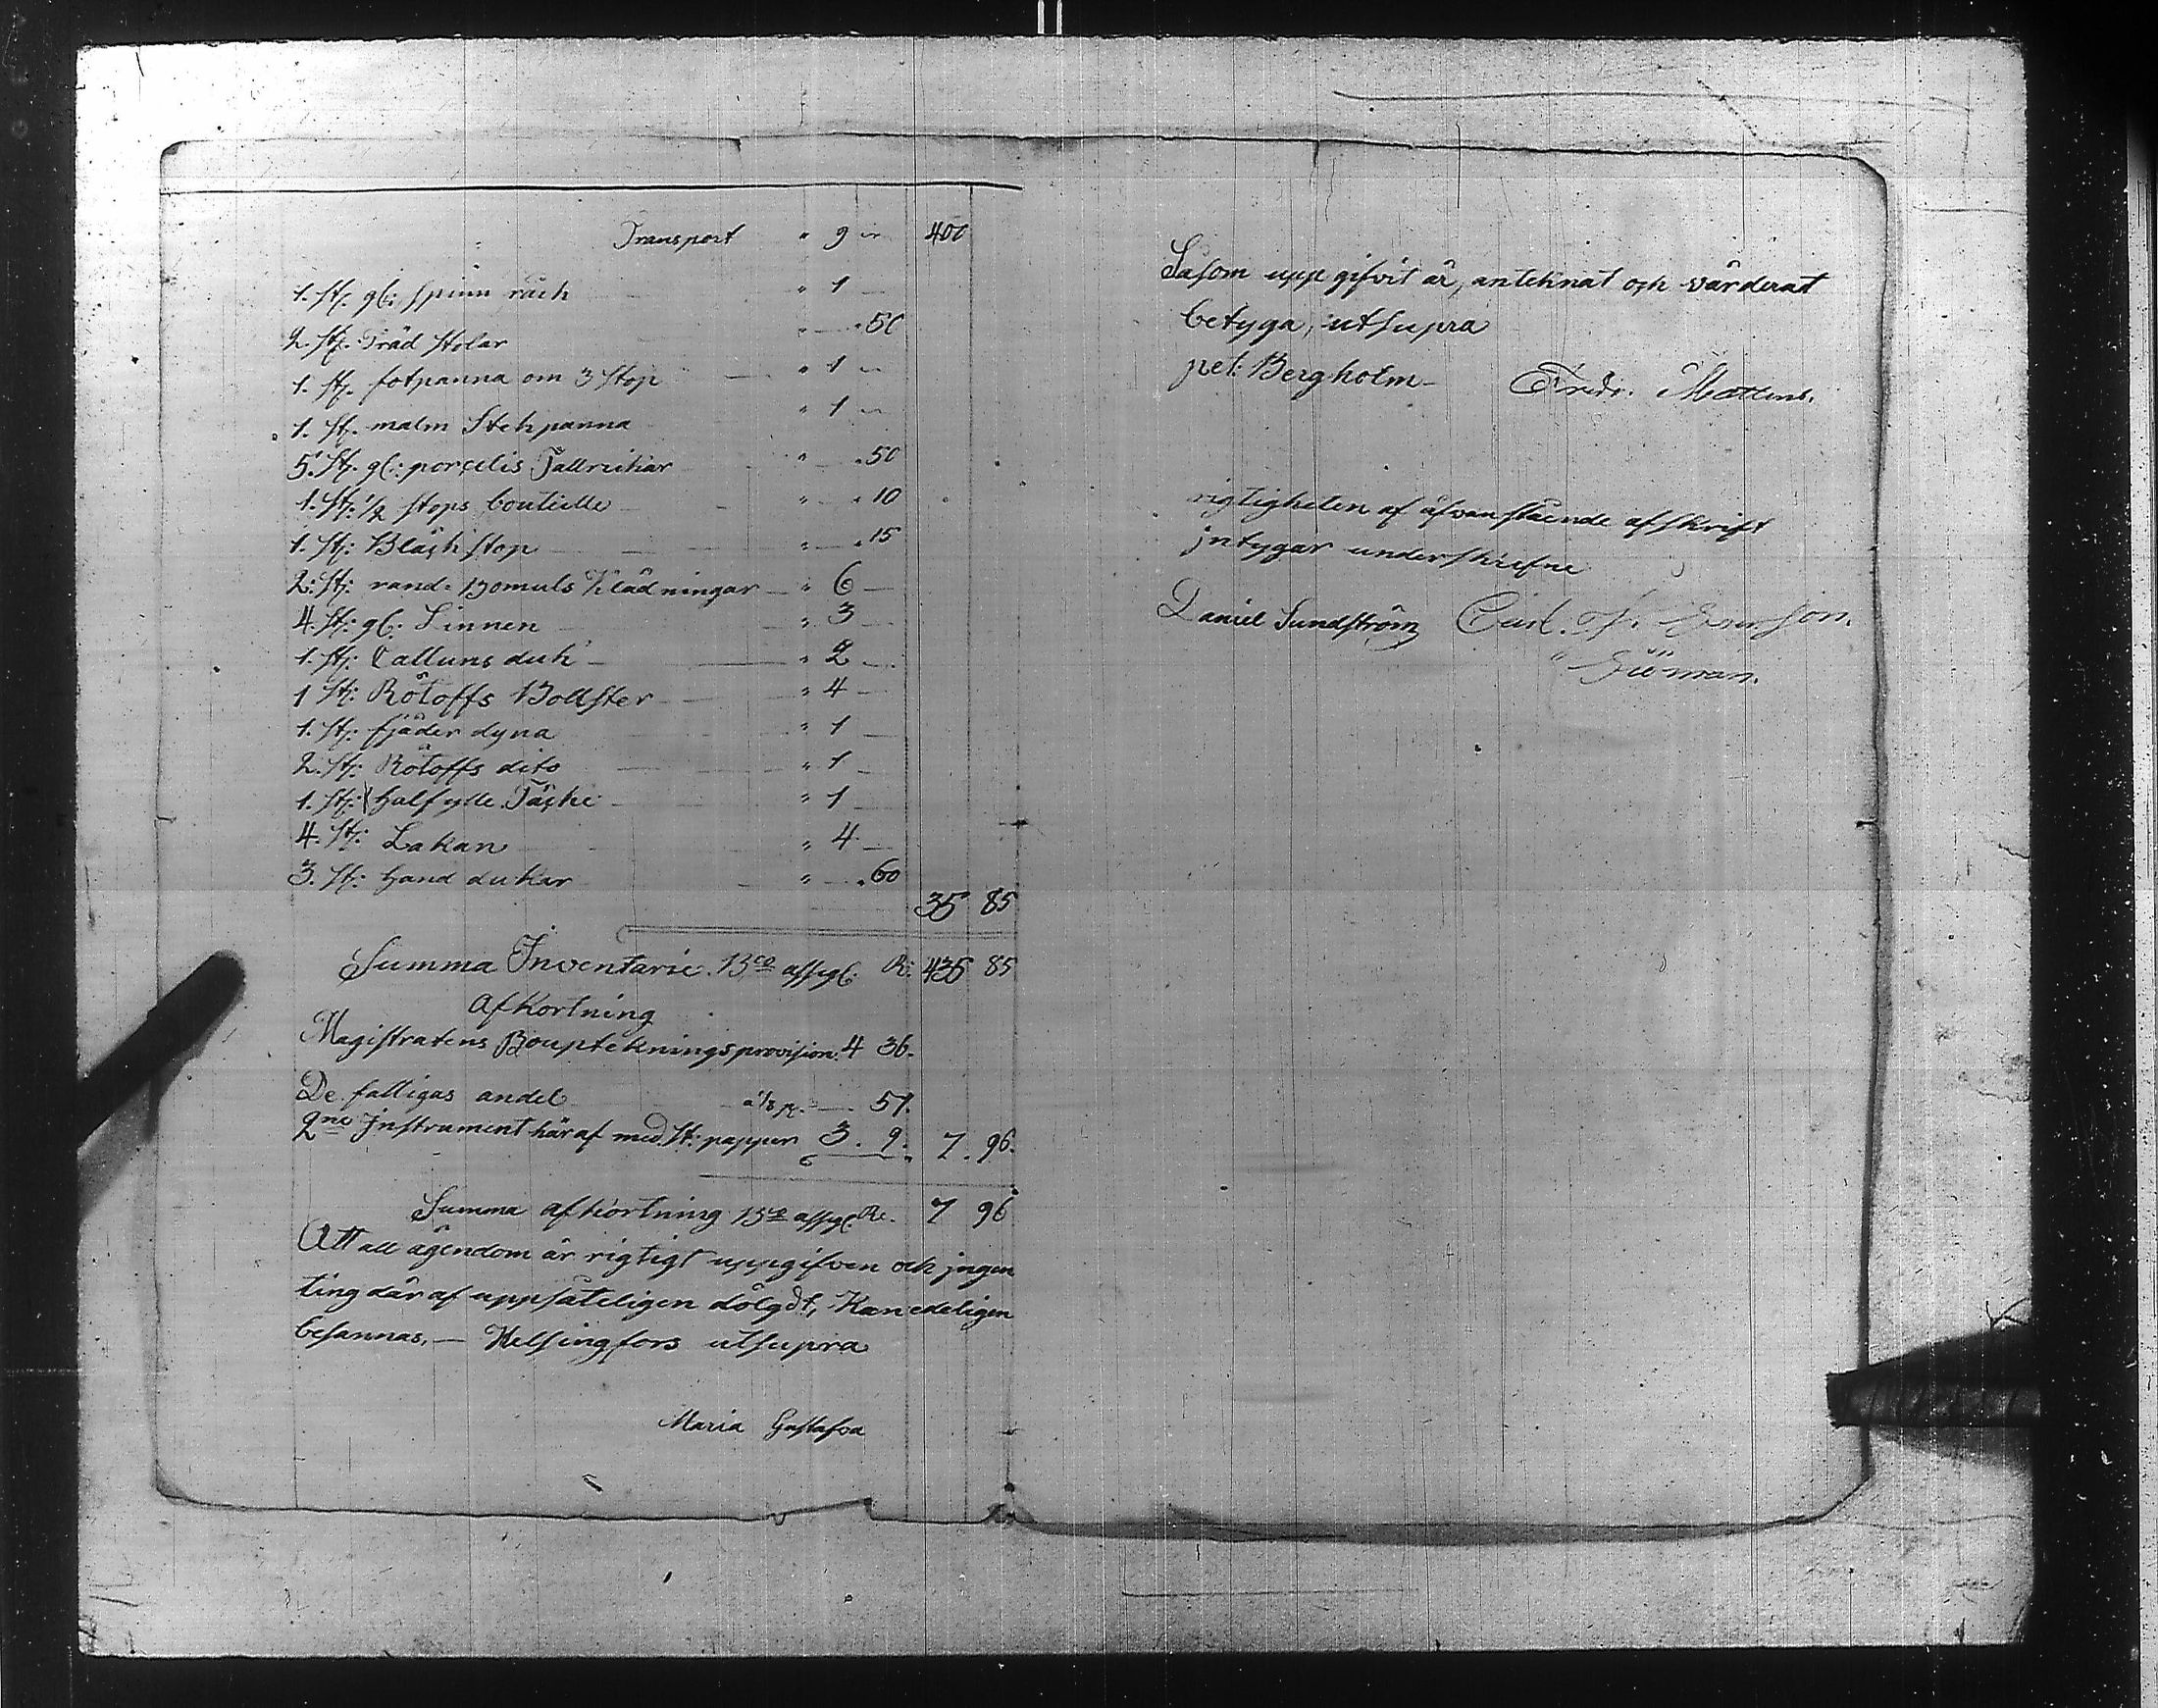 Transport " 9 " 400
1. st: gl: spinn räck " 1 —
2. st: Träd stolar " — " 50
1. st. fotpanna om 3 stop " 1 —
1. st. malm Stekpanna " 1 —
5. St. gl: porçelis Tallrickar " — " 50
1. st: 1/2 stops bouteille " — " 10
1. st: Bläck stop " — " 15
2: st: rand: Bomuls Klädningar " 6 —
4. st: gl: Linnen " 3 —
1. st: Cattuns duk " 2 —
1 st: Rötoffs Bollster " 4 —
1. st: fjäder dyna " 1 —
2. st: Rötoffs dito " 1 —
1. st: half ylle Täcke " 1 —
4. st: Lakan " 4 —
3. st: hand dukar " — " 60
35 85
Summa Inventarie Bco assgl: R: 435 85
Afkortning
Magistratens Boupteknings provision: 4 36.
De fattigas andel a 1/8 pr. — 51.
2ne Instrument häraf med St: papper 3. 9. 7. 96.
Summa afkortning Bco assgl: R:. 7 96
Att all ägendom är rigtigt uppgifven och jngen
ting däraf uppsåteligen dölgdt, Kan edeligen
besannas. — Helsingfors utsupra
Maria Gustafva
Såsom uppgifvit är, anteknat och värderat
betyga, utsupra
pet: Bergholm Fredr.
rigtigheten af åfvanstående afskrift
jntygar underskrefne
Daniel Sundström Carl.